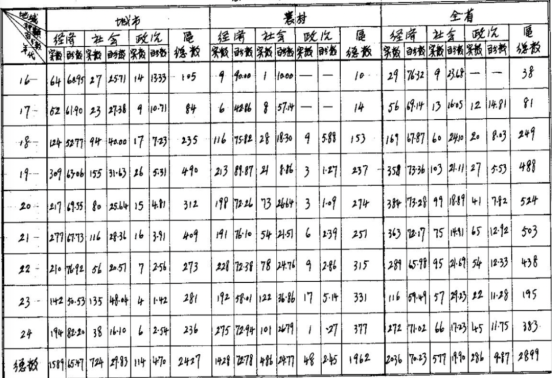 城市 農村 全省
經濟 社会 政治 區總數 經濟 社会 政治 區總數 經濟 社会 政治 區總數
年代 实数 百分数 实数 百分数 实数 百分数 实数 百分数 实数 百分数 实数 百分数 实数 百分数 实数 百分数 实数 百分数
16— 64 60.95 27 25.71 14 13.33 105 9 90.00 1 10.00 — — 10 29 76.32 9 23.68 — — 38
17— 52 61.90 23 27.38 9 10.71 84 6 42.86 8 57.14 — — 14 56 69.14 13 16.05 12 14.81 81
18— 124 52.77 94 40.00 17 7.23 235 116 75.82 28 18.30 9 5.88 153 169 67.87 60 24.10 20 8.03 249
19— 309 63.06 155 31.63 26 5.31 490 213 89.87 21 8.86 3 1.27 237 358 73.36 103 21.11 27 5.53 488
20— 217 69.55 80 25.64 15 4.81 312 198 72.26 73 26.64 3 1.09 274 384 73.28 99 18.89 41 7.82 524
21— 277 67.73 116 28.36 16 3.91 409 191 76.10 54 21.51 6 2.39 251 363 72.17 75 14.91 65 12.92 503
22— 210 76.92 56 20.51 7 2.56 273 228 72.38 78 24.76 9 2.86 315 289 65.98 95 21.69 54 12.33 438
23— 142 50.53 135 48.04 4 1.42 281 192 58.01 122 36.86 17 5.14 331 116 59.49 57 29.23 22 11.28 195
24 194 82.20 38 16.10 6 2.54 236 275 72.94 101 26.79 1 .27 377 272 71.02 66 17.23 45 11.75 383
總數 1589 65.47 724 29.83 114 4.70 2427 1428 72.78 486 24.77 48 2.45 1962 2036 70.23 577 19.90 286 9.87 2899